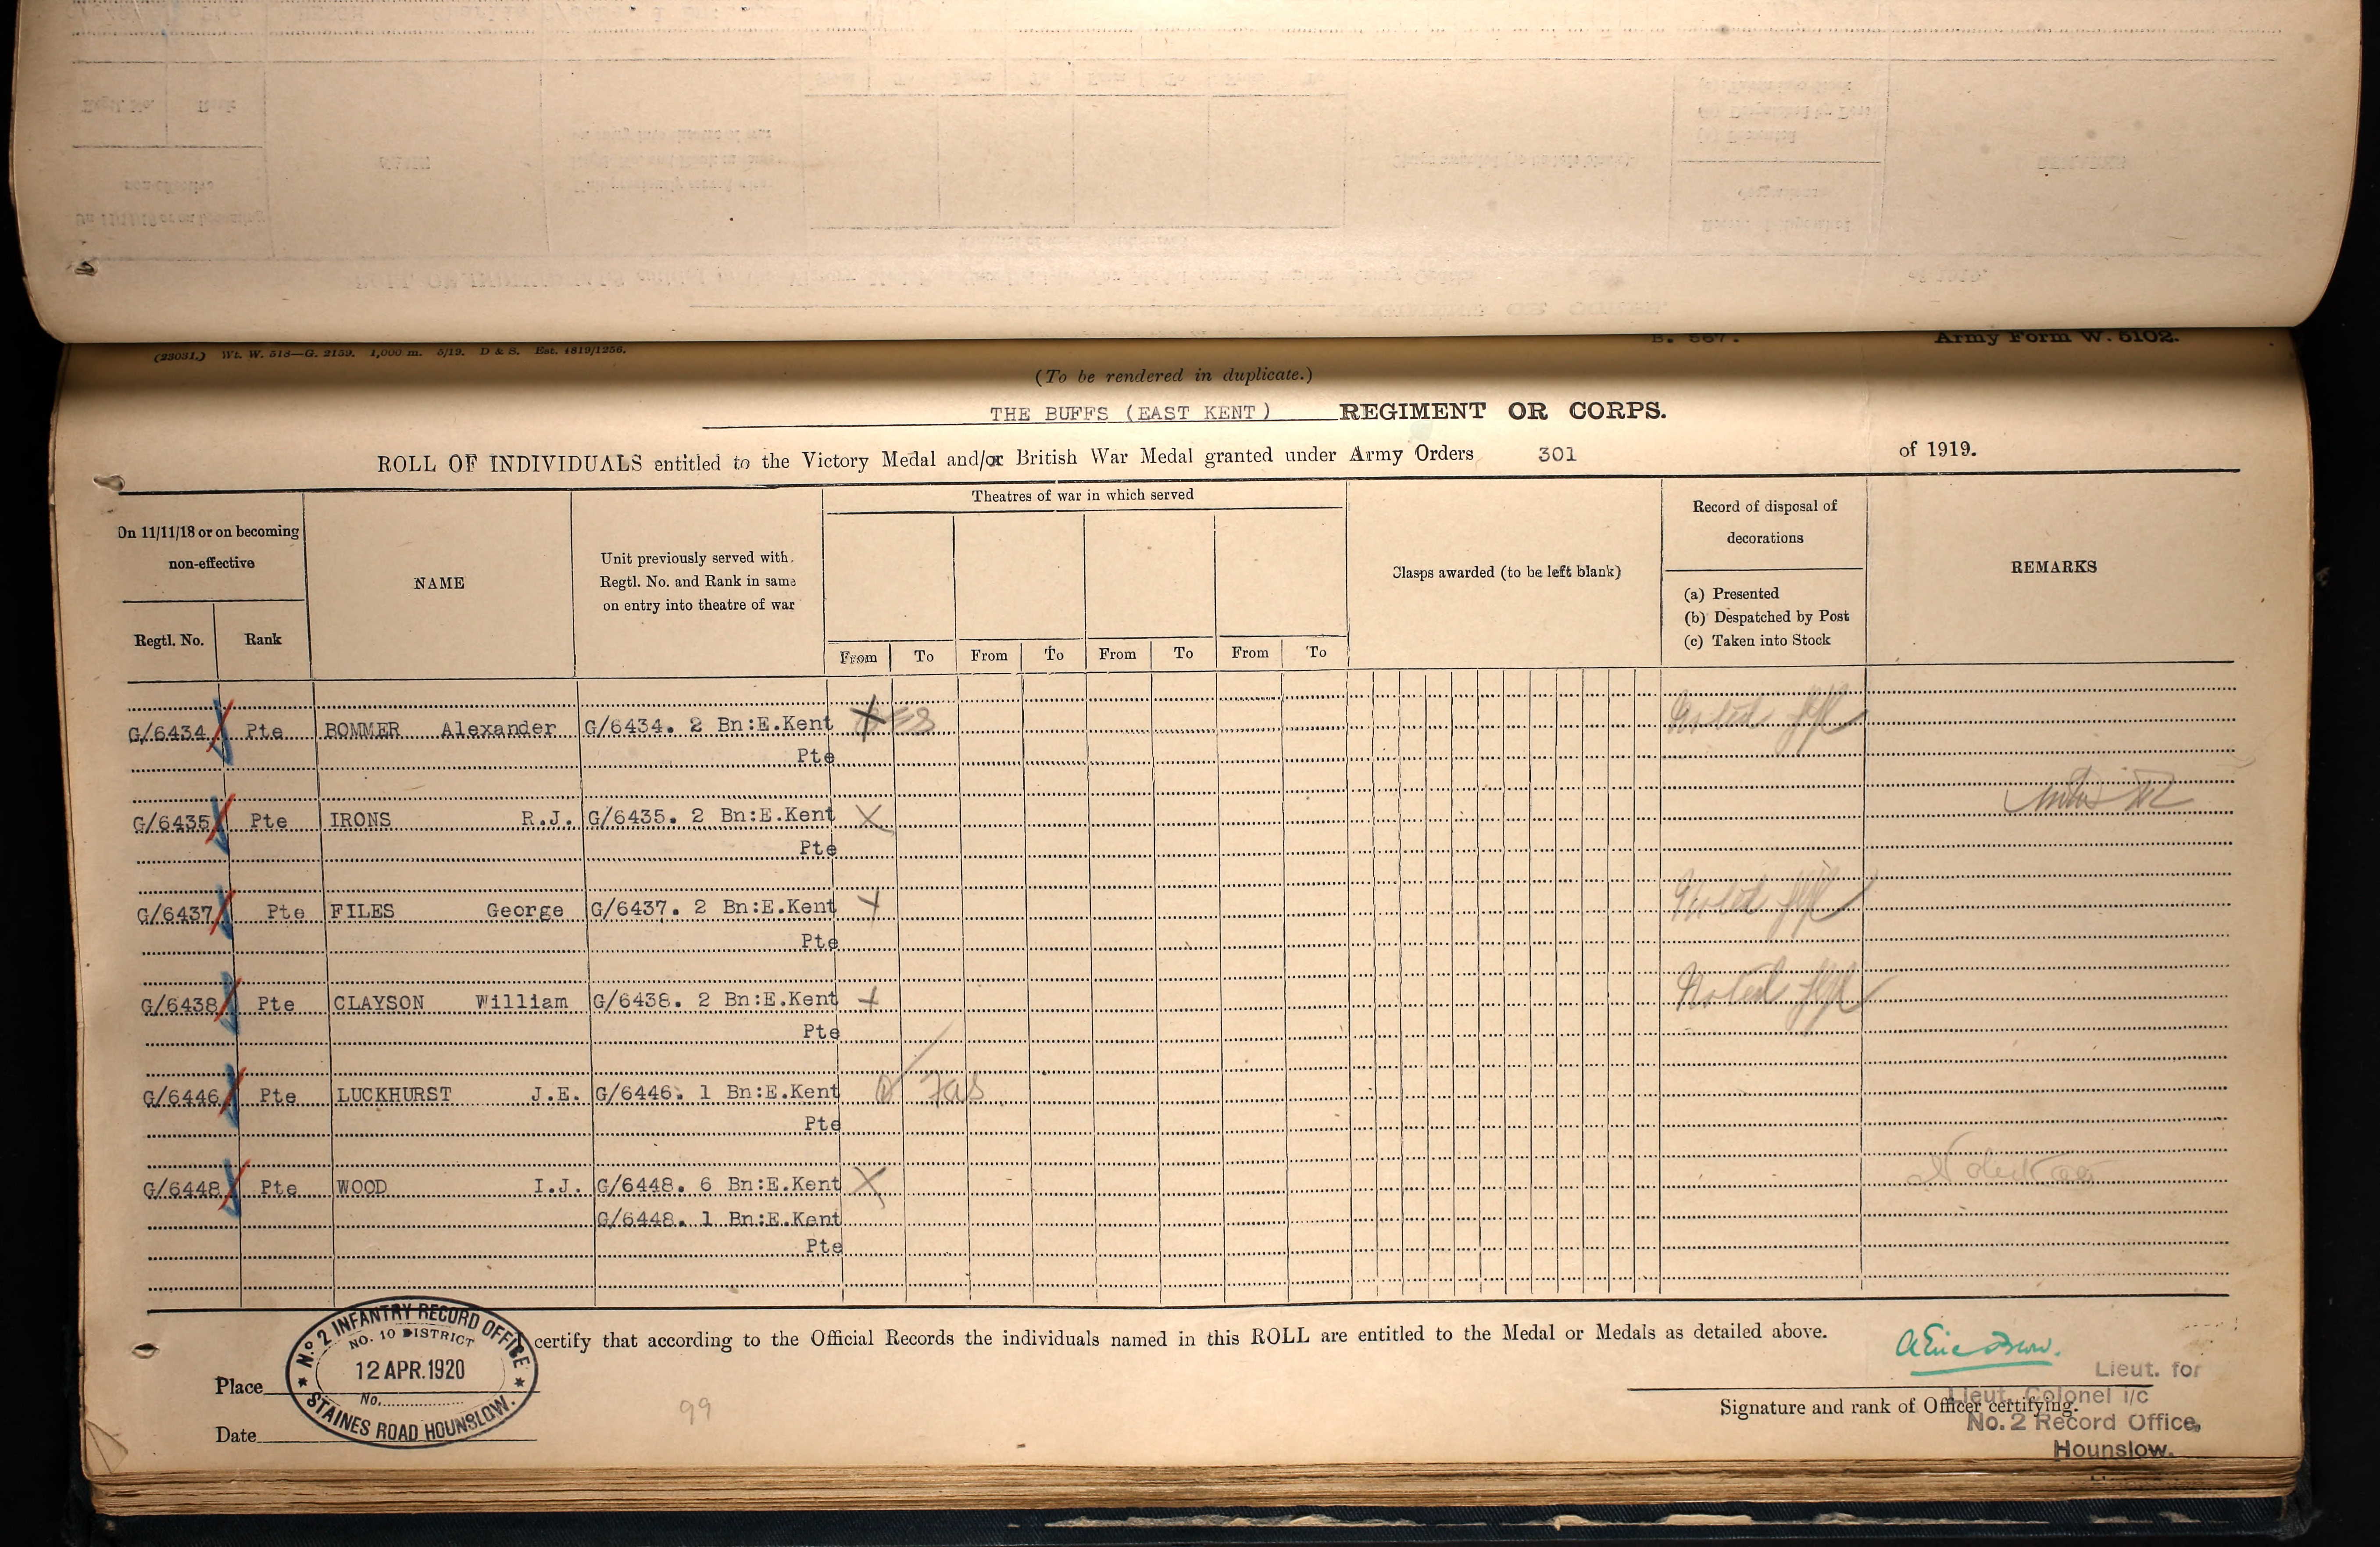 (23031.) Wt. W. 513—G. 2159. 1,000 m. 5/19. D & S. Est. 4819/1256.
B. 567.
Army Form W. 5102.
(To be rendered in duplicate.)
THE BUFFS (EAST KENT) REGIMENT OR CORPS.
ROLL OF INDIVIDUALS entitled to the Victory Medal and/or British War Medal granted under Army Orders 301 of 1919.
On 11/11/18 or on becoming non-effective
Regtl. No.
Rank
NAME
Unit previously served with.
Regtl. No. and Rank in same
on entry into theatre of war
Theatres of war in which served
From To From To From To From To
Clasps awarded (to be left blank)
Record of disposal of
decorations
(a) Presented
(b) Despatched by Post
(c) Taken into Stock
REMARKS
G/6434 Pte BOMMER Alexander G/6434. 2 Bn:E.Kent
Pte
G/6435 Pte IRONS R.J. G/6435. 2 Bn:E.Kent
Pte
G/6437 Pte FILES George G/6437. 2 Bn:E.Kent Noted
Pte
G/6438 Pte CLAYSON William G/6438. 2 Bn:E.Kent Noted
Pte
G/6446 Pte LUCKHURST J.E. G/6446. 1 Bn:E.Kent
Pte
G/6448 Pte WOOD I.J. G/6448. 6 Bn:E.Kent
G/6448. 1 Bn:E.Kent
Pte
certify that according to the Official Records the individuals named in this ROLL are entitled to the Medal or Medals as detailed above.
No. 2 INFANTRY RECORD OFFICE
NO. 10 DISTRICT
12 APR. 1920
No.
STAINES ROAD HOUNSLOW.
Place
Date
99
Lieut. for
Lieut. Colonel i/c
Signature and rank of Officer certifying.
No. 2 Record Office,
Hounslow.